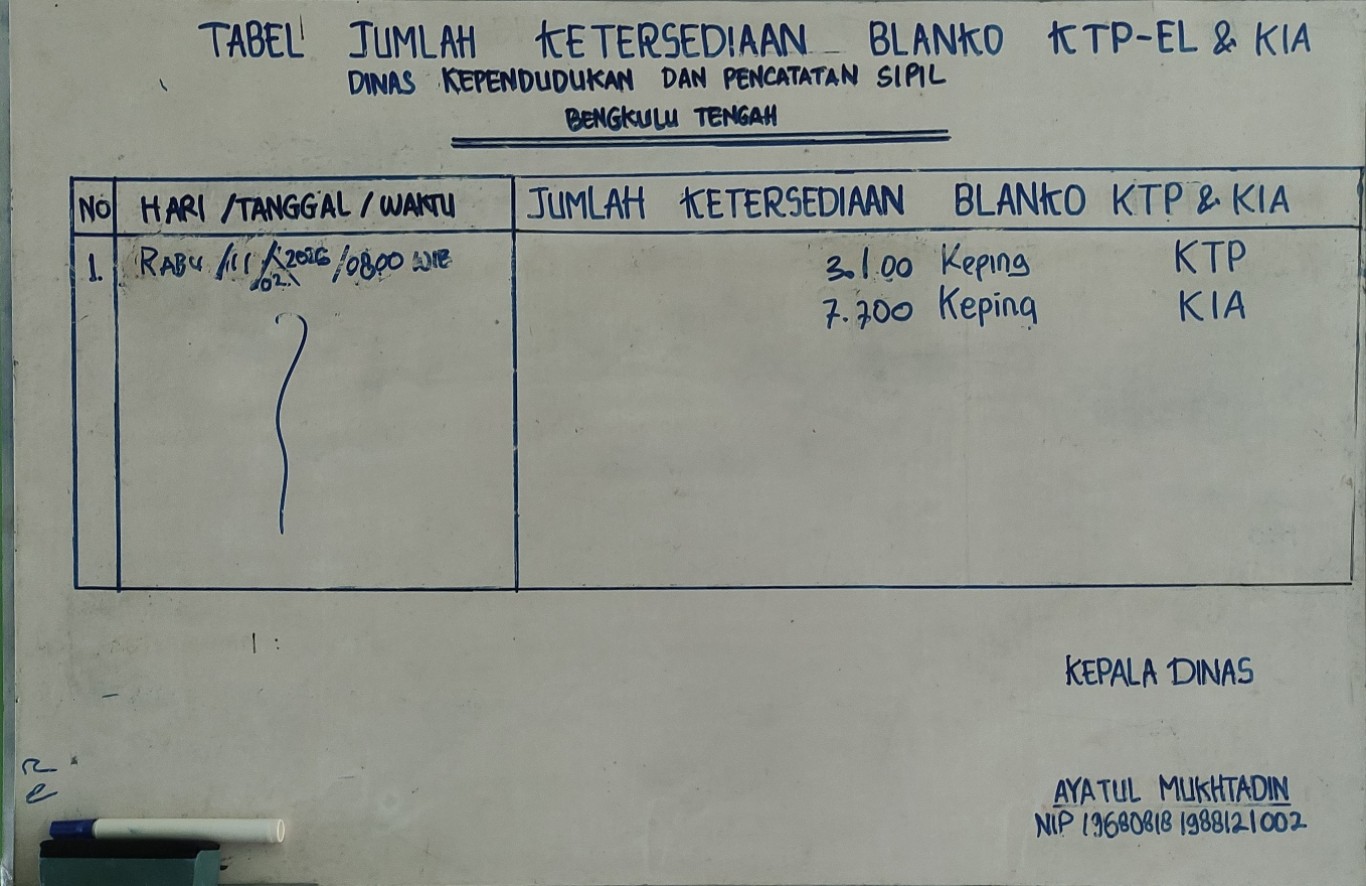 TABEL JUMLAH KETERSEDIAAN BLANKO KTP-EL & KIA
DINAS KEPENDUDUKAN DAN PENCATATAN SIPIL
BENGKULU TENGAH
NO HARI /TANGGAL / WAKTU JUMLAH KETERSEDIAAN BLANKO KTP & KIA
1. RABU /11/02/2026 /0800 WIB 3.100 Keping KTP
7.700 Keping KIA
KEPALA DINAS
AYATUL MUKHTADIN
NIP 19680818 1988121002